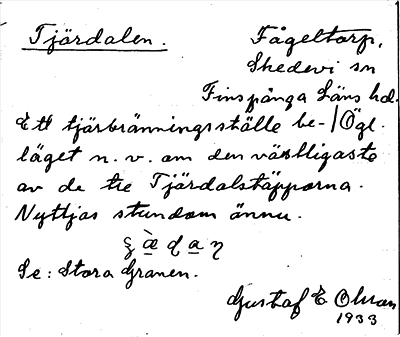 Tjärdalen. Fågeltorp,
Skedevi sn
Finspånga Läns hd.
Ett tjärbränningsställe be- / Ögl.
läget n. v. om den västligaste
av de tre Tjärdalstäpporna.
Nyttjas stundom ännu.
Se: Stora Granen.
Gustaf E Olsson
1933